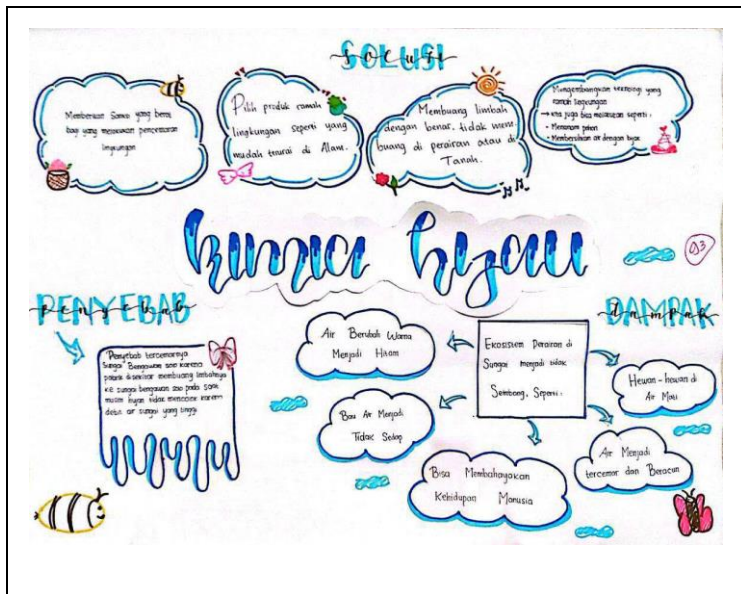 SOLUSI
solusi
Memberikan Sanksi yang berat
bagi yang melakukan pencemaran
lingkungan
Pilih produk ramah
lingkungan seperti yang
mudah terurai di Alam.
Membuang limbah
dengan benar. tidak mem
buang di perairan atau di
Tanah.
Mengembangkan teknologi yang
ramah lingkungan
→ kita juga bisa melakukan seperti :
- Menanam pohon
- Membersihkan air dengan bijak
kimia hijau
93
PENYEBAB
penyebab
Penyebab tercemarnya
Sungai Bengawan solo karena
pabrik disekitar membuang limbahnya
ke sungai bengawan solo pada saat
musim hujan tidak mencolok karena
debit air sungai yang tinggi
DAMPAK
dampak
Air Berubah Warna
Menjadi Hitam
Ekosistem Perairan di
Sungai menjadi tidak
Seimbang, Seperti :
Hewan-hewan di
Air Mati
Bau Air Menjadi
Tidak Sedap
Air Menjadi
tercemar dan Beracun
Bisa Membahayakan
Kehidupan Manusia